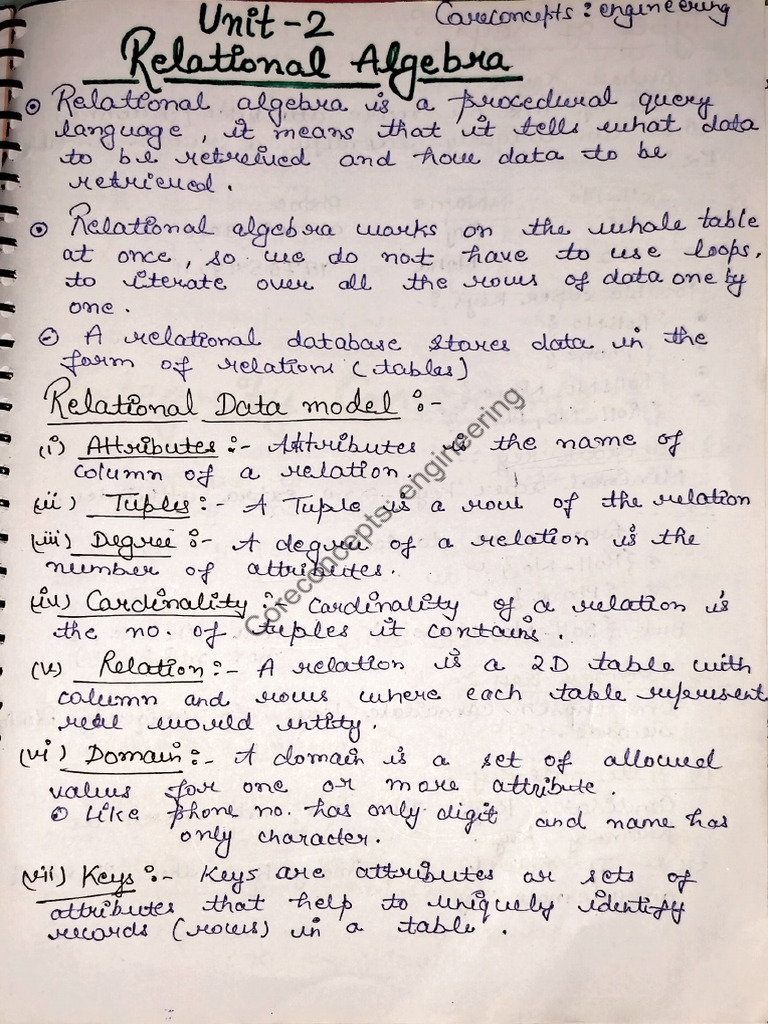 Unit-2
Coreconcepts : engineering
Relational Algebra
Relational algebra is a procedural query
language, it means that it tells what data
to be retreived and how data to be
retrieved.
Relational algebra works on the whole table
at once, so we do not have to use loops,
to iterate over all the rows of data one by
one.
A relational database stores data in the
form of relations (tables)
Relational Data model :-
(i) Attributes :- Attributes is the name of
column of a relation.
(ii) Tuples :- A Tuple is a row of the relation
(iii) Degree :- A degree of a relation is the
number of attributes.
(iv) Cardinality :- Cardinality of a relation is
the no. of tuples it contains.
(v) Relation :- A relation is a 2D table with
column and rows where each table represent
real world entity.
(vi) Domain :- A domain is a set of allowed
values for one or more attribute.
Like phone no. has only digit and name has
only character.
(vii) Keys :- Keys are attributes or sets of
attributes that help to uniquely identify
records (rows) in a table.
Coreconcepts : engineering